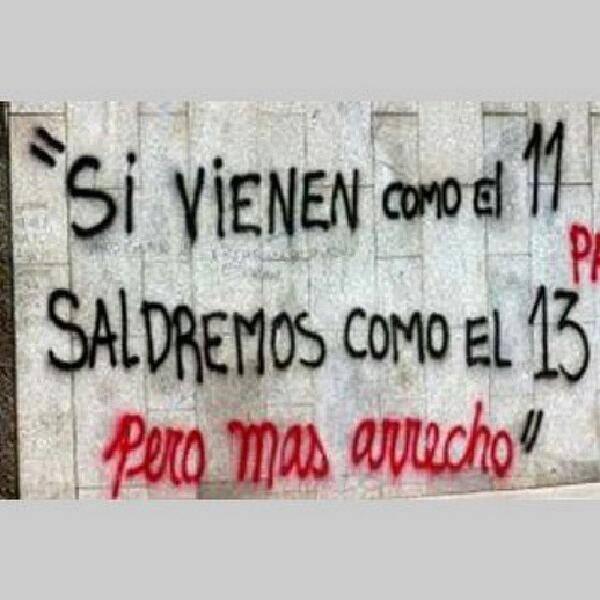 "Si VIENEN COMO El 11
PA
SALDREMOS COMO EL 13
Pero mas arrecho"